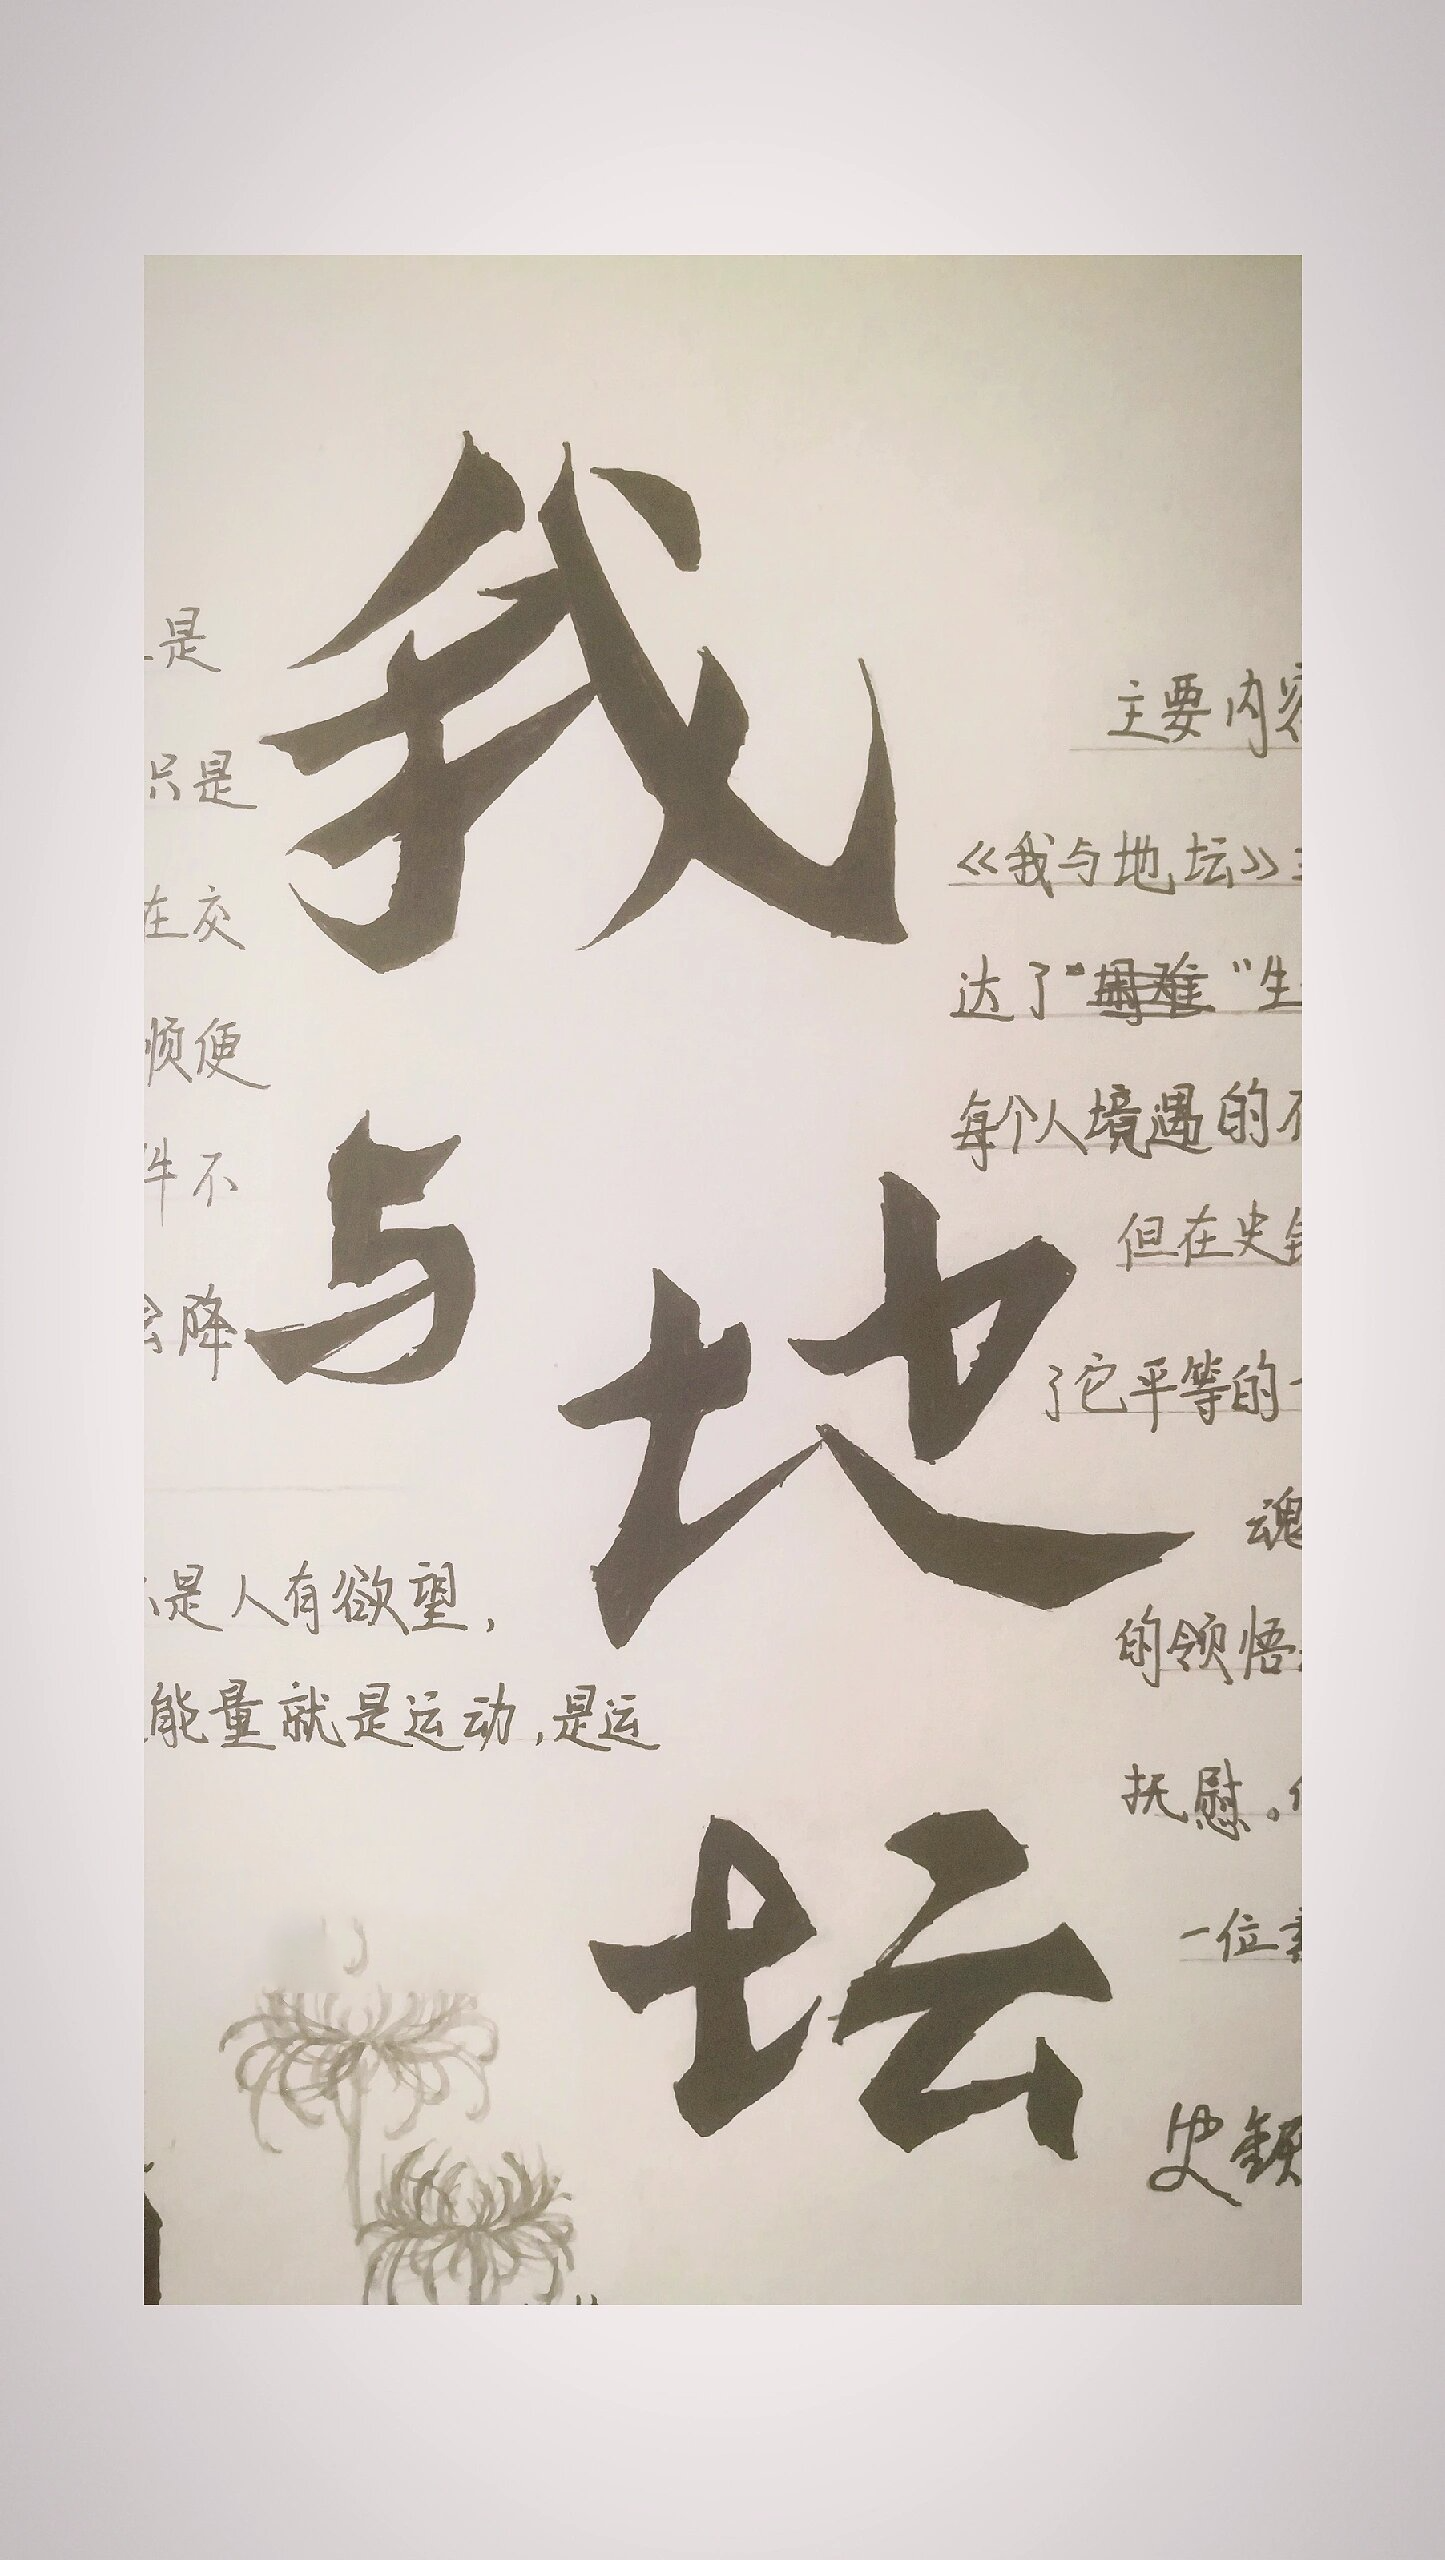 我
与
地
坛
是
只是
在交
顺便
件不
会降
是人有欲望，
能量就是运动，是运
主要内容
《我与地坛》
达了“ ”生
每个人境遇的不
但在史铁
了它平等的
魂
的领悟
抚慰。
一位
史铁